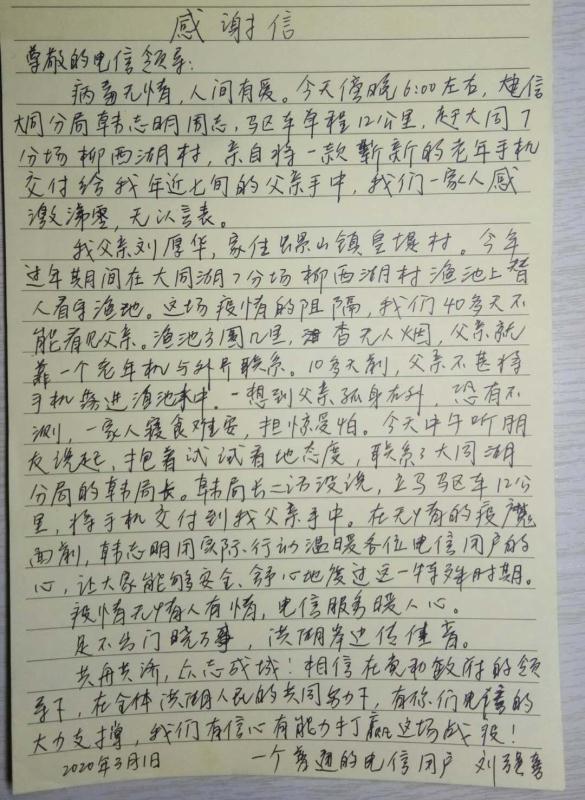 感谢信
尊敬的电信领导:
病毒无情,人间有爱。今天傍晚6:00左右,电信
大同分局韩志明同志,驱车单程12公里,赶大同7
分场柳西湖村,亲自将一款崭新的老年手机
交付给我年近七旬的父亲手中,我们一家人感
激涕零,无以言表。
我父亲刘厚华,家住螺山镇皇堤村。今年
过年期间在大同湖7分场柳西湖村渔池上替
人看守渔池。这场疫情的阻隔,我们40多天不
能看见父亲。渔池方圆几里,杳无人烟,父亲就
靠一个老年机与外界联系。10多天前,父亲不甚将
手机落进渔池中。一想到父亲孤身在外,恐有不
测,一家人寝食难安,担惊受怕。今天中午听朋
友说起,抱着试试看地态度,联系了大同湖
分局的韩局长。韩局长二话没说,立马驱车12公
里,将手机交付到我父亲手中。在无情的疫魔
面前,韩志明用实际行动温暖各位电信用户的
心,让大家能够安全、舒心地度过这一特殊时期。
疫情无情人有情,电信服务暖人心。
足不出门晓万事,洪湖岸边传佳音。
共舟共济,众志成城!相信在党和政府的领
导下,在全体洪湖人民的共同努力下,有你们电信的
大力支撑,我们有信心有能力打赢这场战役!
2020年3月1日 一个普通的电信用户 刘